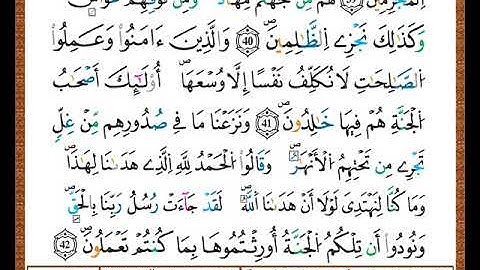 اَ۬لْمُجْرِمِينَۖ 39 لَهُم مِّن جَهَنَّمَ مِهَادٞ وَمِن فَوْقِهِمْ غَوَاشٖۖ
وَكَذَٰلِكَ نَجْزِے اِ۬لظَّٰلِمِينَۖ 40 وَالذِينَ ءَامَنُوا۟ وَعَمِلُوا۟
اُ۬لصَّٰلِحَٰتِ لَا نُكَلِّفُ نَفْسًا إِلَّا وُسْعَهَاۖ أُوْلَٰٓئِكَ أَصْحَٰبُ
اُ۬لْجَنَّةِ هُمْ فِيهَا خَٰلِدُونَۖ 41 وَنَزَعْنَا مَا فِے صُدُورِهِم مِّنْ غِلّٖ
تَجْرِے مِن تَحْتِهِمُ اُ۬لْأَنْهَٰرُۖ وَقَالُوا۟ اُ۬لْحَمْدُ لِلهِ اِ۬لذِے هَدَىٰنَا لِهَٰذَاۖ
وَمَا كُنَّا لِنَهْتَدِيَ لَوْلَا أَنْ هَدَىٰنَا اَ۬للَّهُۖ لَقَدْ جَآءَتْ رُسُلُ رَبِّنَا بِالْحَقِّۖ
وَنُودُوٓا۟ أَن تِلْكُمُ اُ۬لْجَنَّةُ أُورِثْتُمُوهَا بِمَا كُنتُمْ تَعْمَلُونَۖ 42